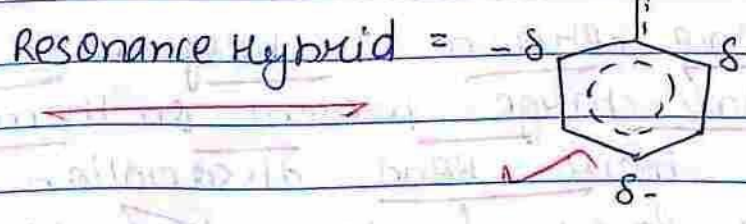 Resonance Hybrid = -δ δ
δ-